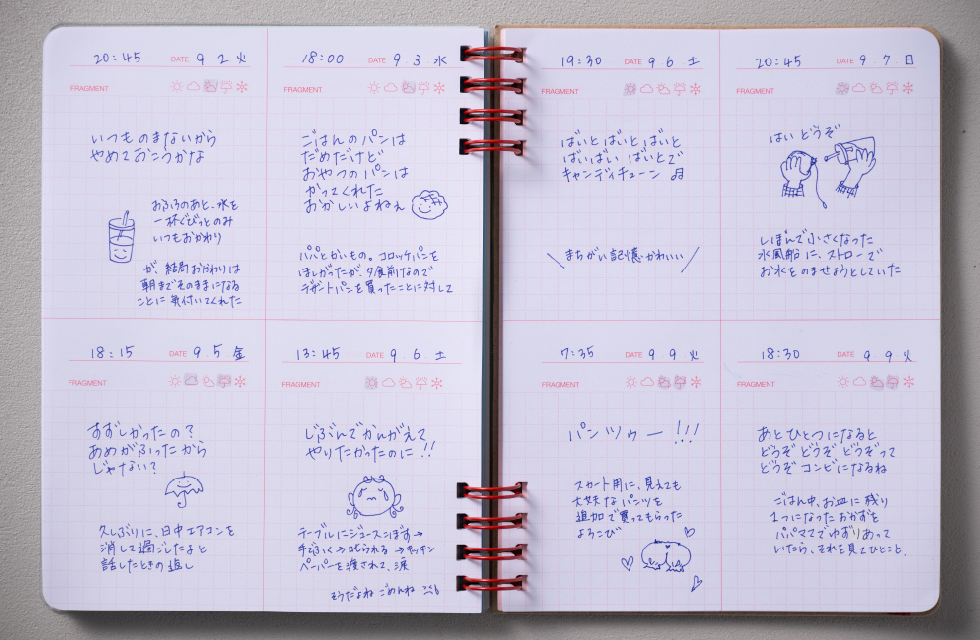 20:45 DATE 9 2 火
FRAGMENT
いつも のまないから
やめておこうかな
おふろのあと、水を
一杯ぐびっとのみ
いつもおかわり
が、結局おかわりは
朝までそのままになる
ことに気付いてくれた
18:00 DATE 9 3 水
FRAGMENT
ごはんのパンは
だめだけど
おやつのパンは
かってくれた
おかしいよねぇ
パパとかいもの。コロッケパンを
ほしがったが、夕食前なので
デザートパンを買ったことに対して
18:15 DATE 9.5 金
FRAGMENT
すずしかったの?
あめがふったから
じゃない?
久しぶりに、日中エアコンを
消して過ごしたよと
話したときの返し
13:45 DATE 9.6 土
FRAGMENT
じぶんでかんがえて
やりたかったのに!!
テーブルにジュースこぼす→
手でふく→叱られる→キッチン
ペーパーを渡されて、涙
そうだよね ごめんね
19:30 DATE 9 6 土
FRAGMENT
ばいと ばいと ばいと
ばいばい ばいとで
キャンディチューン ♫
\ まちがい記憶かわいい /
20:45 DATE 9.7.日
FRAGMENT
はい どうぞ
しぼんで小さくなった
水風船に、ストローで
お水をのませようとしていた
7:35 DATE 9.9 火
FRAGMENT
パンツゥー !!!
スカート用に、見えても
大丈夫なパンツを
追加で買ってもらった
よろこび
18:30 DATE 9.9 火
FRAGMENT
あとひとつになると
どうぞ どうぞ どうぞって
どうぞ コンビになるね
ごはん中、お皿に残り
1つになったおかずを
パパママでゆずりあって
いたら、それを見てひとこと。